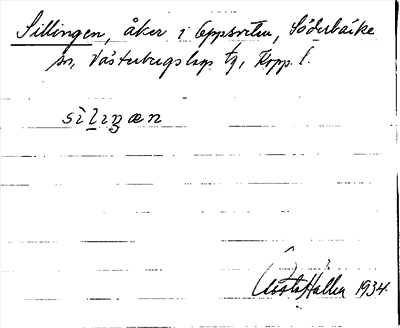 Sillingen, åker i Uppsveten, Söderbärke
sn, Västerbergslags tg, Kopp. l.
sìliŋæn
Gösta Hallén 1934